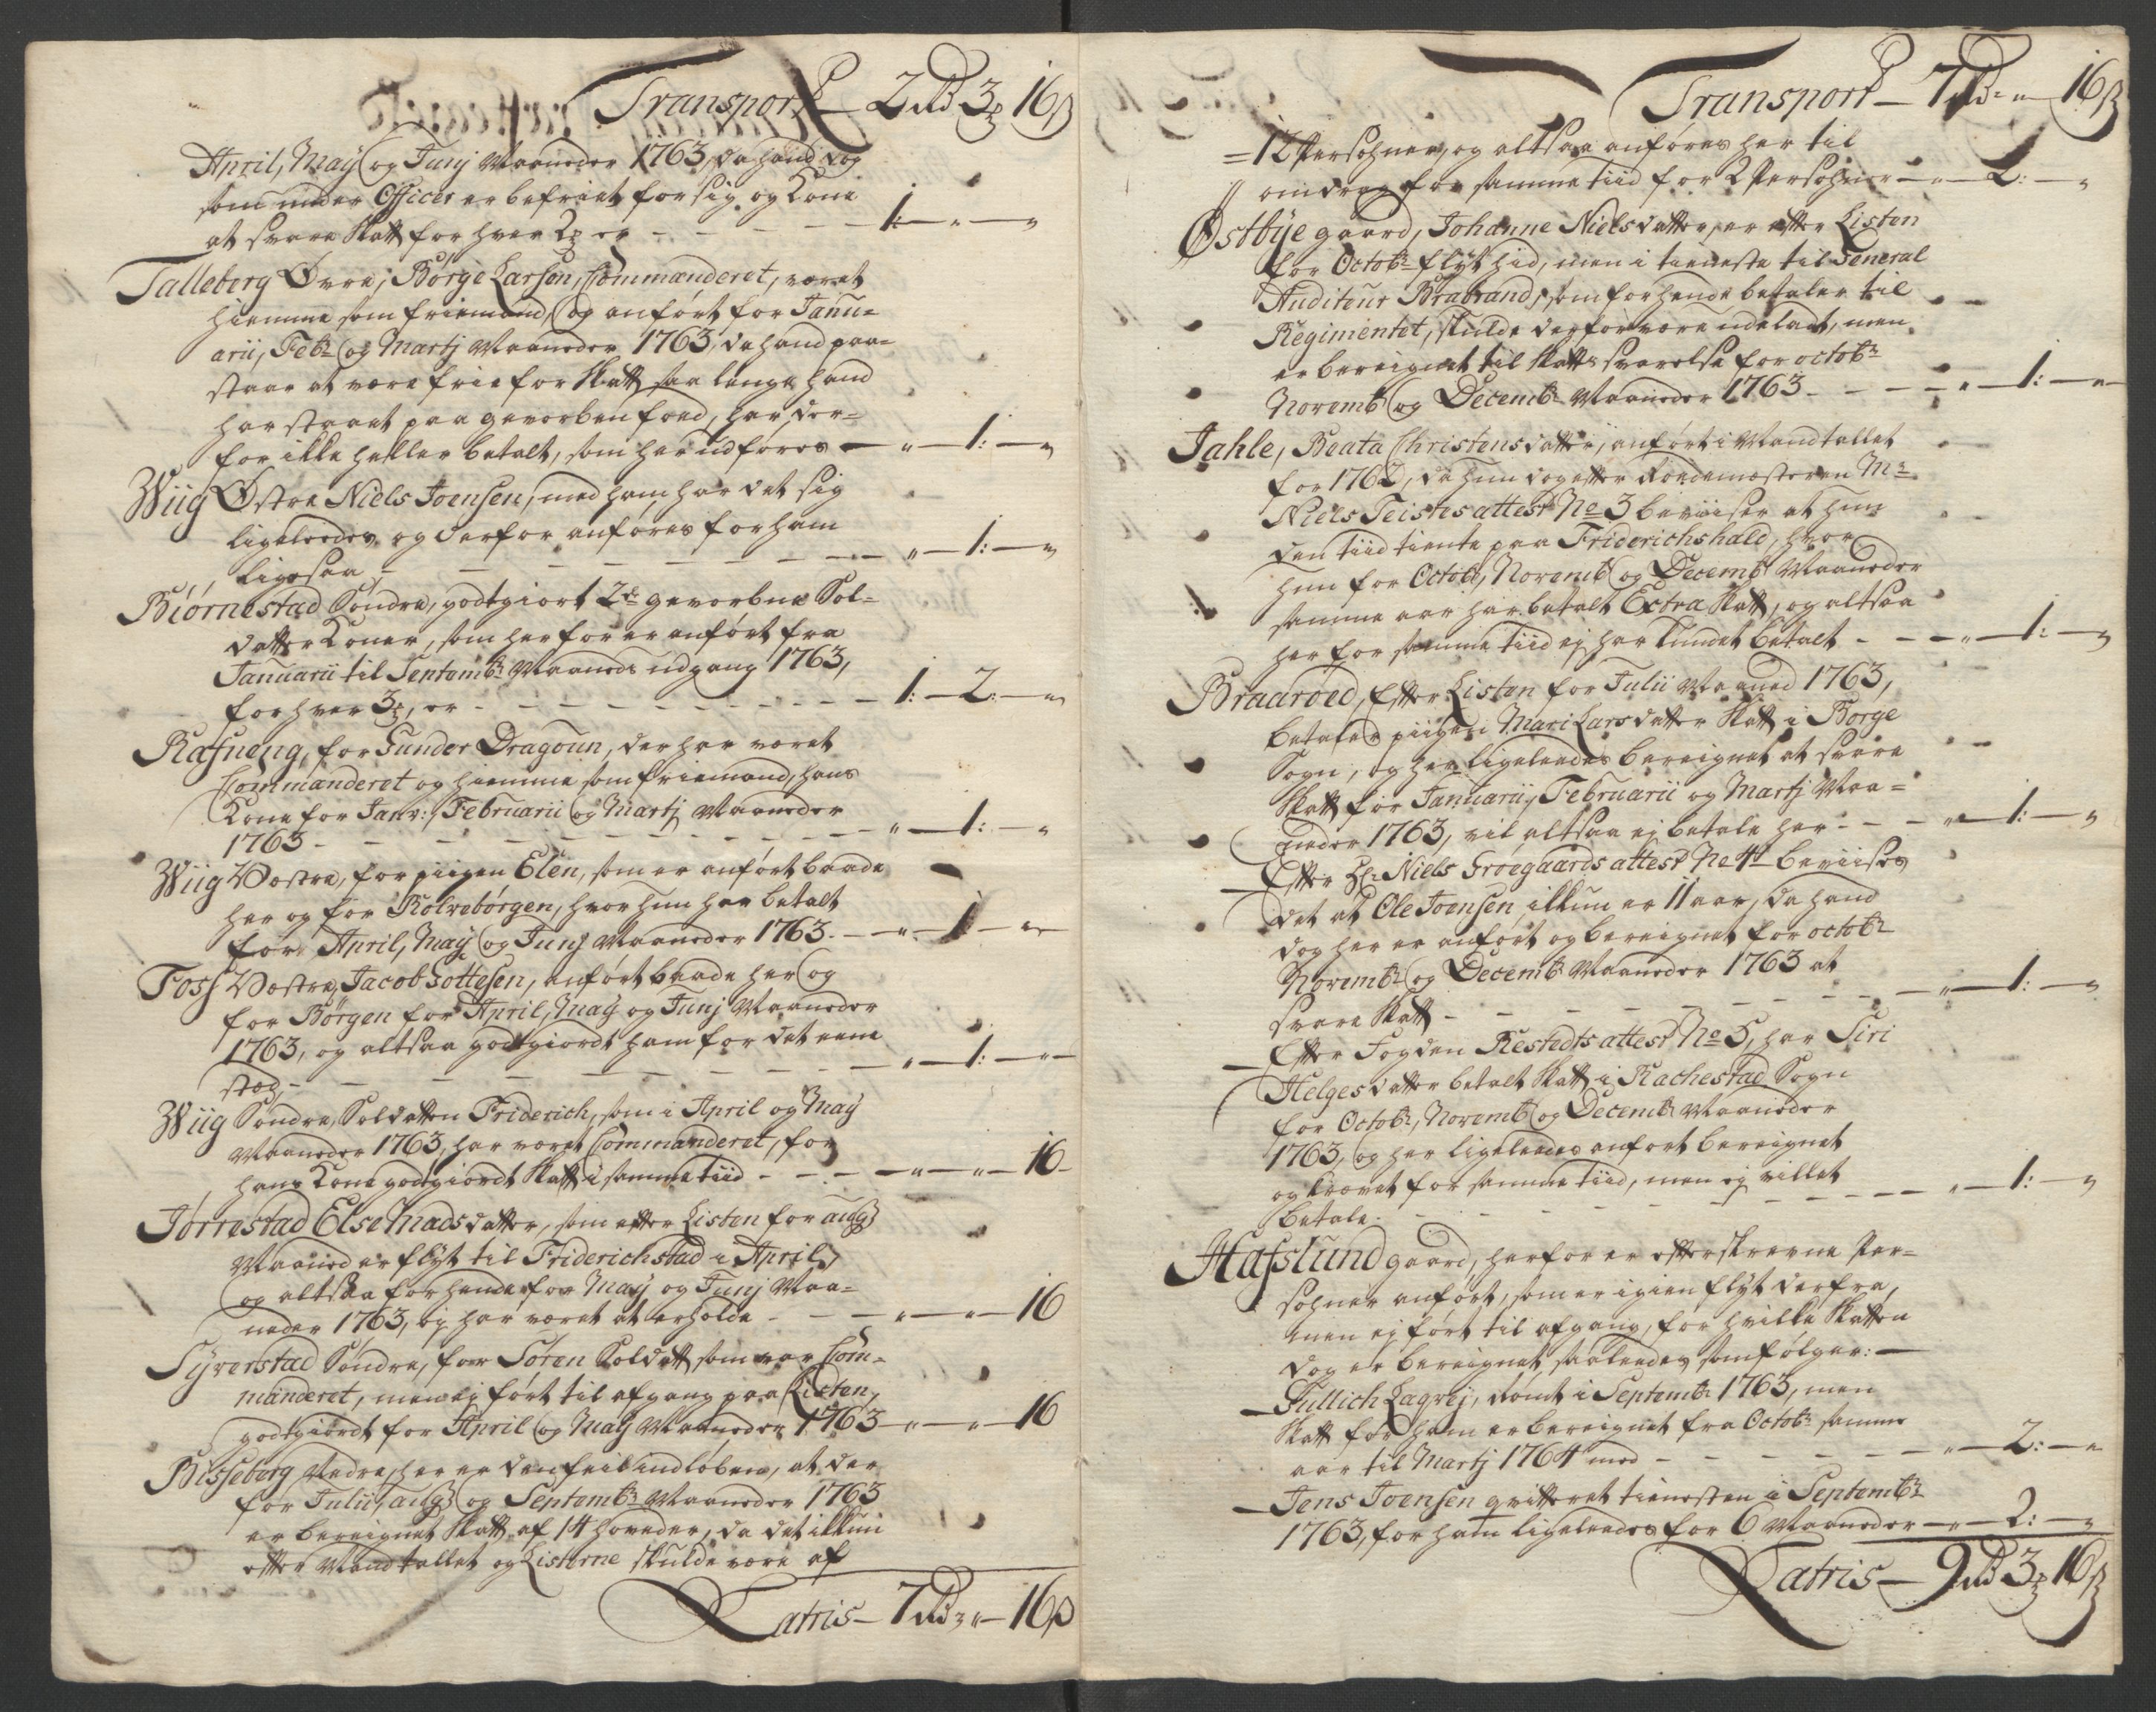 Transport – 2 rd 3 ₰ 16 ß
April, May og Junj Maaneder 1763, da hand dog
som under Officer er befriet for sig og Kone
at svare Skatt for hver 2 ₰ er – – – 1: – " – "
Talleberg Øvre, Børge Larsen, Commanderet, været
hiemme som friemand, og anført for Janu-
arii, Febr: og Martj Maaneder 1763, da hand paa-
staar at være frie for Skatt saa lenge hand
har staaet paa geworben foed, har der-
for ikke heller betalt, som her udføres – " – 1: – "
Wiig Østre Niels Joensen, med ham har det sig
ligeleedes og derfor anføres for ham
ligesaa – – – – – " – 1: – "
Biørnestad Søndre, godtgiort 2de geworbne Sol-
datter Koner, som her for er anført fra
Januarii til Septembr: Maaneds udgang 1763,
for hver 3 ₰, er – – – – – 1: – 2: – "
Rafneng, for Gunder Dragoun, der har været
Commanderet og hiemme som friemand, hans
Kone for Janv:, Februarii og Martj Maaneder
1763 – – – – – " – 1: – "
Wiig Vestre, for piigen Elen, som er anført baade
her og for Kolvebørgen, hvor hun har betalt
for April, May og Junj Maaneder 1763. – " – 1 – "
Foss Vestre, Jacob Gottesen, anført baade her og
for Børgen for April, May og Junj Maaneder
1763, og altsaa godtgiordt ham for det eene
stæd, – – – – – " – 1: – "
Wiig Søndre, Soldatten Friderich, som i April og May
Maaneder 1763, har været Commanderet, for
hans Kone godtgiordt Skatt i samme tiid – – " – " – 16 –
Jørrestad Else Madsdatter, som efter Listen for aug:
Maaned er flyt til Friderichstad i April,
og altsaa for hende for May og Junj Maa-
neder 1763, ej har været at erholde – – " – " – 16
Syverstad Søndre, for Søren Soldatt som var Com-
manderet, men ej ført til afgang paa Listen,
godtgiordt for April og May Maaneder 1763 – " – " – 16
Bisseberg Nedre, her er den feil indløben, at der
for Julii, aug: og Septembr: Maaneder 1763
er bereignet Skatt af 14 hoveder, da det ikkun
efter Mandtallet og Listerne skulde være af
Latris – 7 rd " – 16 ß
Transport – 7 rd " – 16 ß
= 12 Persohner, og altsaa anføres her til
omdrag for samme tiid for 2 Persohner – " – 2: – "
Østbye gaard, Johanne Nielsdatter, er efter Listen
for Octobr: flyt hid, men i tieneste til General
Auditeur Brabrand, som for hende betaler til
Regimentet, skulde derfor være udeladt, men
er bereignet til Skatts svarelse for octobr:
Novemb: og Decembr: Maaneder 1763 – – – " – 1: – "
Jahle, Beata Christensdatter, anført i Mandtallet
for 1762, da hun dog efter Roedemesteren Mr:
Niels Teistes attest No 3 beviiser at hun
den tiid tiente paa Friderichshald, hvor
hun for Octob:, Novemb: og Decemb: Maaneder
samme aar har betalt Extra Skatt, og altsaa
her for samme tiid ej har kundet betalt – – " – 1: – "
Braaroed, Efter Listen for Julii Maaned 1763,
betaler piigen Mari Larsdatter Skatt i Borge
Sogn, og her ligeleedes bereignet at svare
Skatt for Januarii, Februarii og Martj Maa-
neder 1763, vil altsaa ej betale her – – " – 1: – "
– Efter Hr: Niels Grøegaards attest No 4 beviises
det at Ole Joensen ikkun er 11 aar, da hand
dog her er anført og bereignet for octobr:
Novembr: og Decemb: Maaneder 1763 at
svare Skatt – – – – – " – 1: – "
– Efter Fogden Restedts attest No 5, har Siri
Helgesdatter betalt Skatt i Rachestad Sogn
for Octobr:, Novemb: og Decembr: Maaneder
1763, og her ligeleedes anført bereignet
og krævet for samme tiid, men ej villet
betale. – – – – – " – 1: – "
Hafslund gaard, herfor er efterskrevne Per-
sohner anført, som er igien flyt derfra,
men ej ført til afgang, for hvilke Skatten
dog er bereignet saaleedes som følger: –
– Tullich Laqvej, rømt i Septembr: 1763, men
Skatt for ham er bereignet fra Octobr: samme
aar til Martj 1764 med – – – – – " – 2: – "
– Jens Joensen qvitteret tienesten i Septembr:
1763, for ham ligeleedes for 6 Maaneder – " – 2: – "
Latris – 9 rd 3 ₰ 16 ß